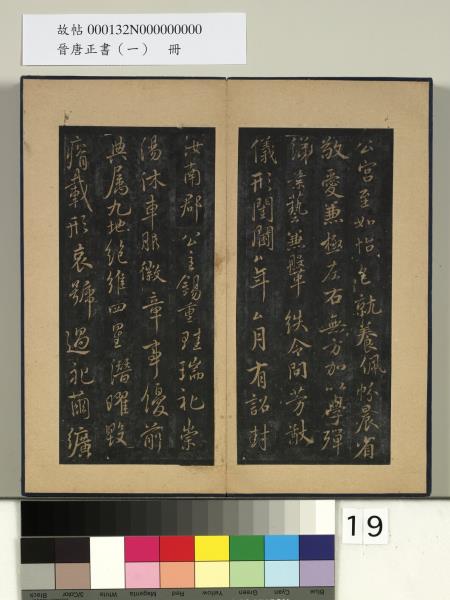 故帖 000132N000000000
晉唐正書（一）　冊
公宮至如怡色就養佩帉晨省
敬愛兼極左右無方加以學殫
綈素藝兼鞶紩令問芳猷
儀形閨閫八年八月有詔封
汝南郡公主錫重珪瑞礼崇
湯沐車服徽章事優前
典属九地絕維四星潛曜毀
瘠載形哀號過礼繭纊
19
Blue
Cyan
Green
Yellow
Red
Magenta
White
3/Color
Black